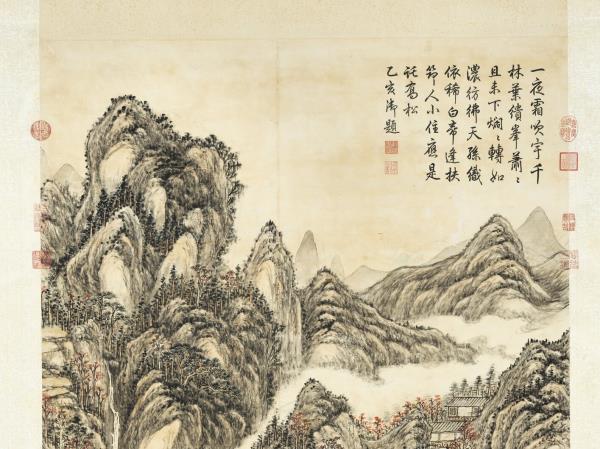 一夜霜吹宇千
林葉繢峯蕭〻
且未下爛〻轉如
濃彷彿天孫織
依稀白帝逢扶
笻人小住應是
託喬松
乙亥御題